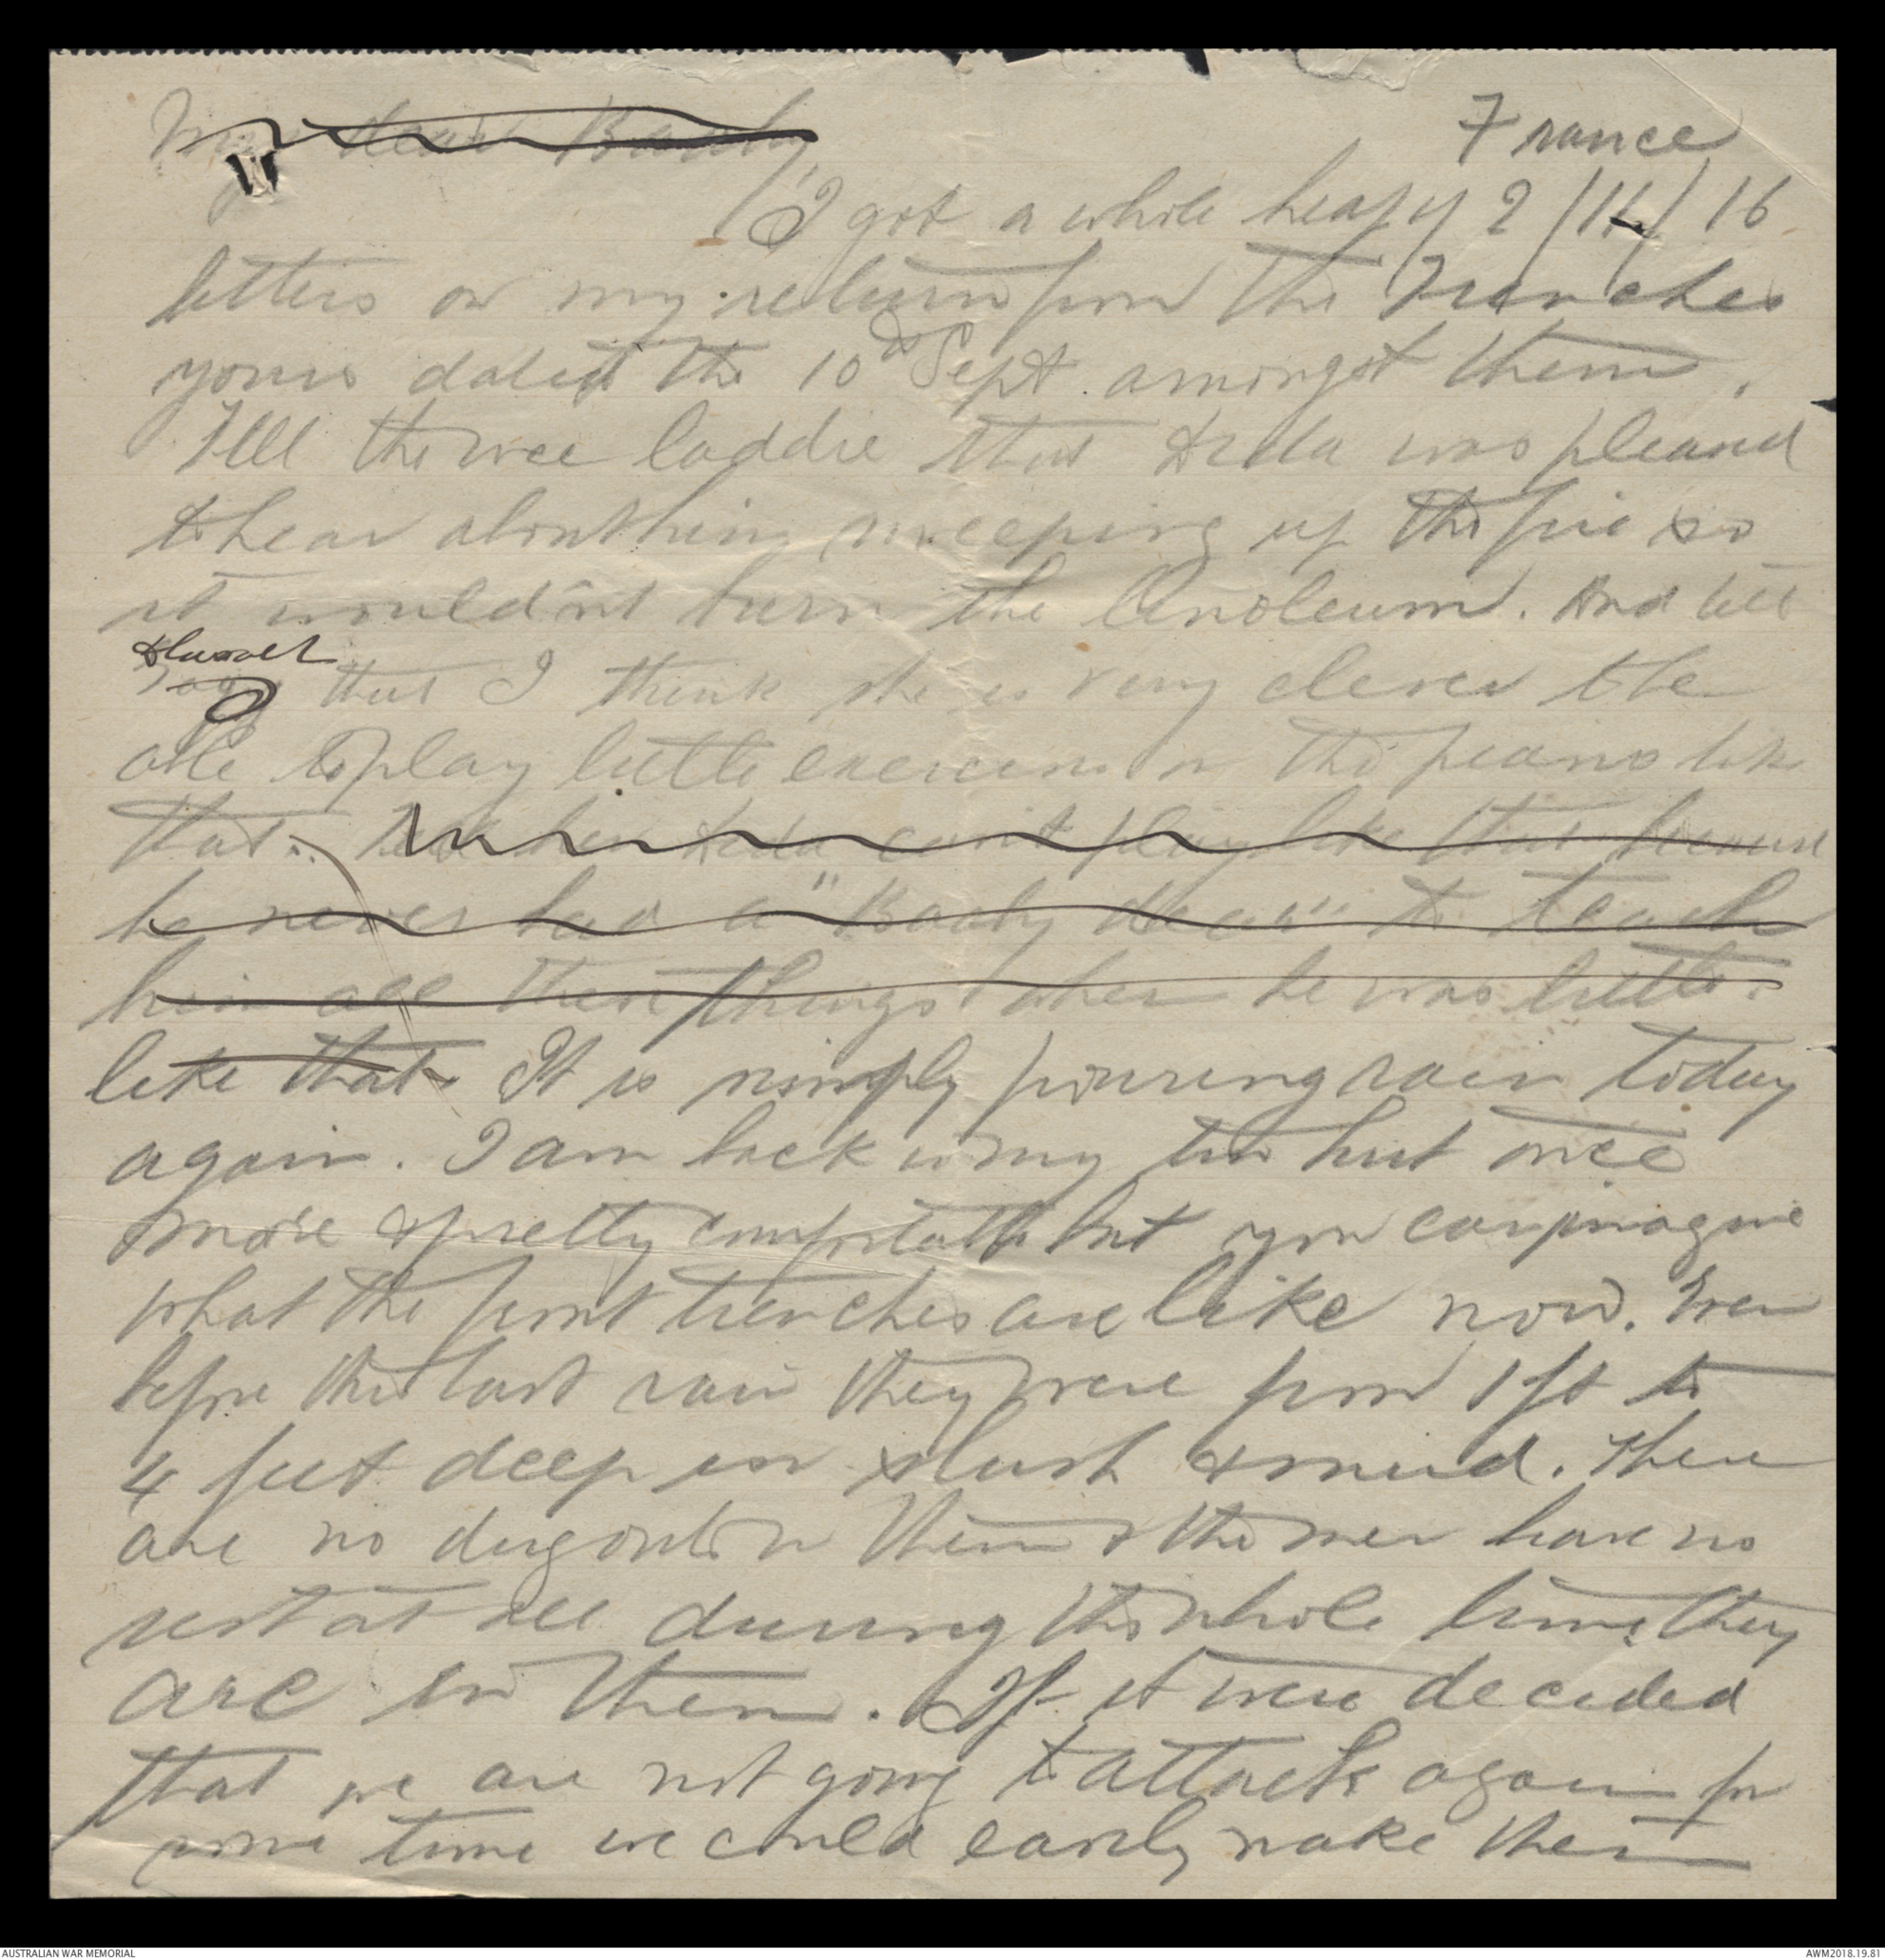 My dear Baaby, France
I got a whole heap of 2/11/16
letters on my return from the Trenches
yours dated the 10th Sept. amongst them.
Tell the wee laddie that Dida was pleased
to hear about him sweeping up the fire so
it wouldn't burn the linoleum. And tell
that I think she is very clever to be
able to play little exercises on the piano like
that. Tell her Dida can't play like that because
he never had a "Baaby dear" to teach
him all these things when he was little
like that. It is simply pouring rain today
again. I am back in my tin hut once
more & pretty comfortable but you can imagine
what the front trenches are like now. Even
before this last rain they were from 1 ft to
4 feet deep in slush & mud. There
are no dugouts in them & the men have no
rest at all during the whole time they
are in them. If it were decided
that we are not going to attack again for
some time we could easily make them
AUSTRALIAN WAR MEMORIAL AWM2018.19.81